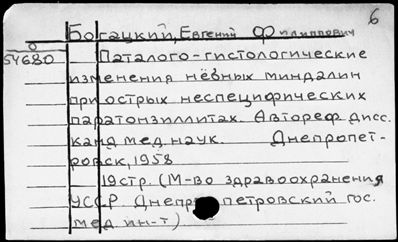 6
Богацкий, Евгений Филиппович
0
54680
Паталого-гистологические
изменения нёбных миндалин
при острых неспецифических
паратонзиллитах. Автореф дисс.
канд мед наук. Днепропет-
ровск, 1958
19стр. (М-во здравоохранения
УССР Днепропетровский гос.
мед ин-т)